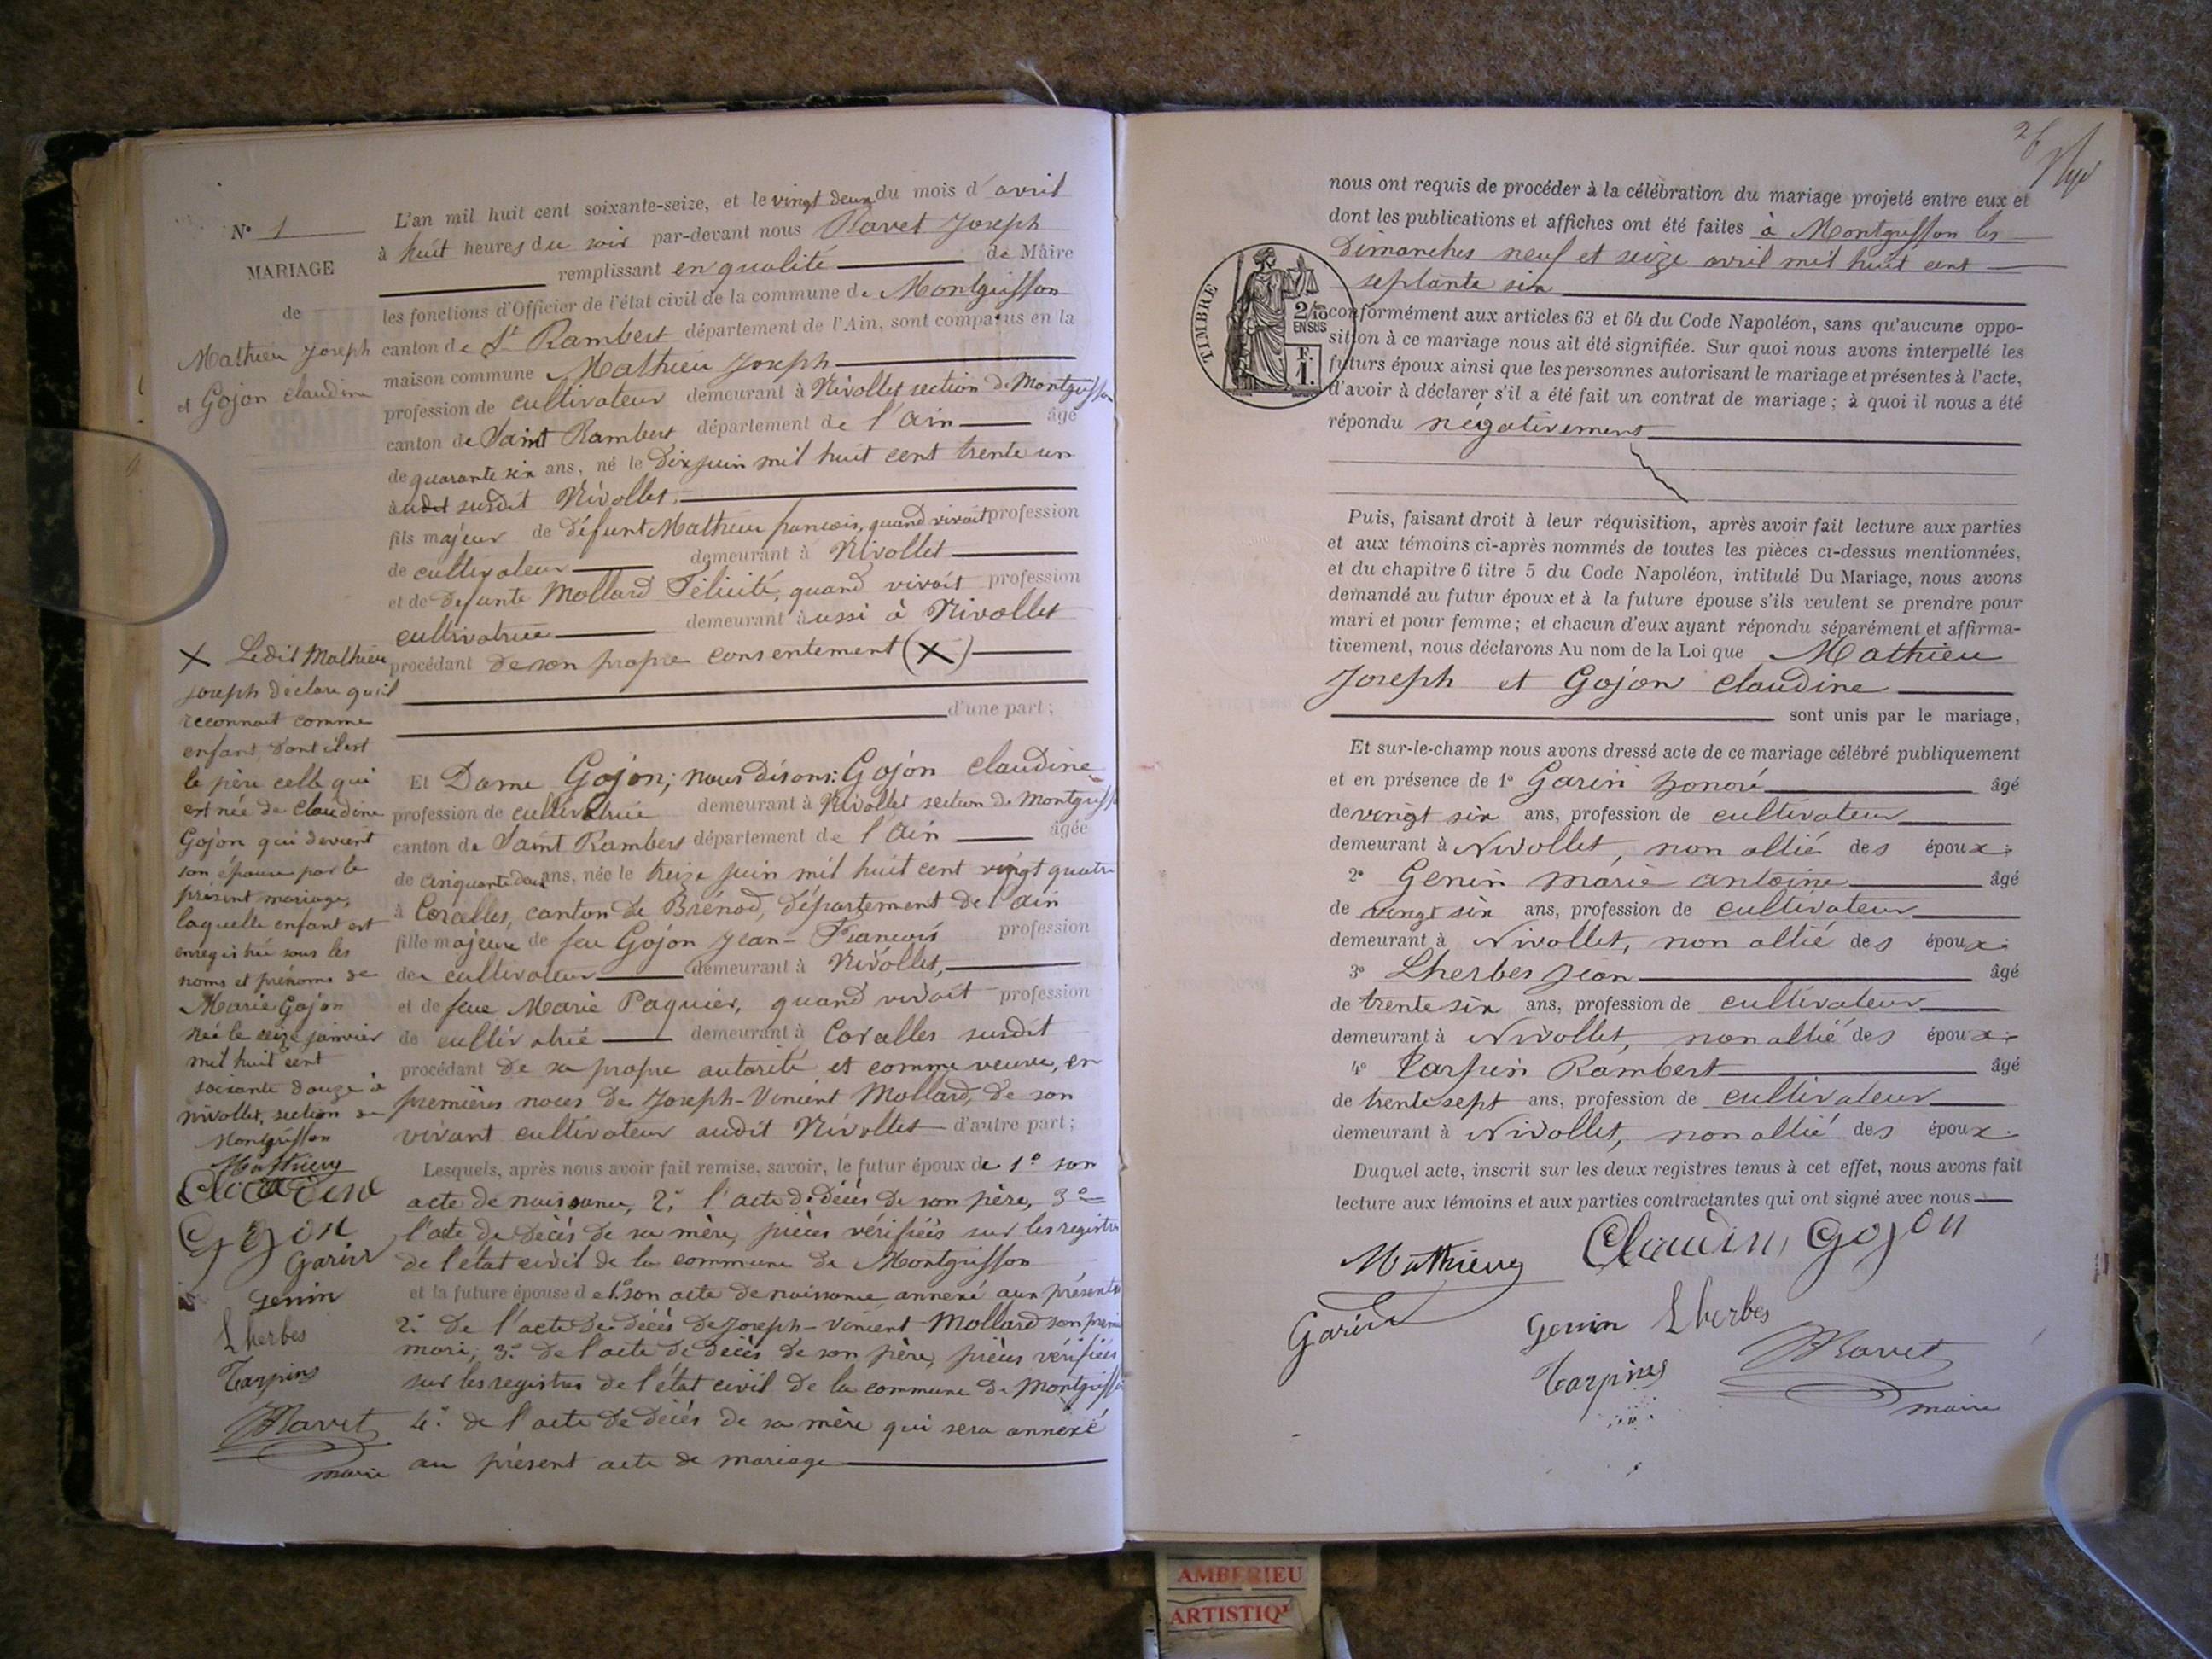 N° 1
MARIAGE
de
Mathieu Joseph
et Gojon claudine
L'an mil huit cent soixante-seize, et le vingt deux du mois d'avril
à huit heures du soir par-devant nous Ravet Joseph
remplissant en qualité de Maire
les fonctions d'Officier de l'état civil de la commune de Montgriffon
canton de St Rambert département de l'Ain, sont comparus en la
maison commune Mathieu Joseph
profession de cultivateur demeurant à Nivollet section de Montgriffon
canton de Saint Rambert département de l'Ain âgé
de quarante six ans, né le Dix juin mil huit cent trente un
audit susdit Nivollet.
fils majeur de Défunt Mathieu françois, quand vivait profession
de cultivateur demeurant à Nivollet
et de Defunte Mollard Félicité, quand vivait profession
cultivatrice demeurant aussi à Nivollet
procédant de son propre consentement (X)
d'une part;
X Ledit Mathieu
joseph déclare qu'il
reconnait comme
enfant, dont il est
le père celle qui
est née de Claudine
Gojon qui devient
son épouse par le
présent mariage,
laquelle enfant est
enregistrée sous les
noms et prénoms de
Marie Gojon
née le seize janvier
mil huit cent
soixante douze à
nivollet, section de
Montgriffon
Mathieu
Claudine
Gojon
Garin
Genin
Lherbes
Tarpins
Ravet
maire
Et Dame Gojon; nous disons: Gojon claudine
profession de cultivatrice demeurant à Nivollet section de Montgriffon
canton de Saint Rambert département de l'Ain âgée
de cinquante deux ans, née le treize juin mil huit cent vingt quatre
à Coralles, canton de Brénod, département de l'ain
fille majeure de feu Gojon Jean-François profession
de cultivateur demeurant à Nivollet,
et de feue Marie Paquier, quand vivait profession
de cultivatrice demeurant à Coralles susdit
procédant de sa propre autorité et comme veuve, en
premières noces de Joseph-Vincent Mollard, de son
vivant cultivateur audit Nivollet d'autre part;
Lesquels, après nous avoir fait remise, savoir, le futur époux de 1° son
acte de naissance, 2° l'acte de décès de son père, 3°
l'acte de décès de sa mère, pièces vérifiées sur les registres
de l'état civil de la commune de Montgriffon
et la future épouse de 1° son acte de naissance annexé aux présentes
2° de l'acte de décès de Joseph-Vincent Mollard son premier
mari, 3° de l'acte de décès de son père, pièces vérifiées
sur les registres de l'état civil de la commune de Montgriffon
4° de l'acte de décès de sa mère qui sera annexé
au présent acte de mariage
26
nous ont requis de procéder à la célébration du mariage projeté entre eux et
dont les publications et affiches ont été faites à Montgriffon les
Dimanches neuf et seize avril mil huit cent
septante six
TIMBRE
2/10
EN SUS
F.
1.
conformément aux articles 63 et 64 du Code Napoléon, sans qu'aucune oppo-
sition à ce mariage nous ait été signifiée. Sur quoi nous avons interpellé les
futurs époux ainsi que les personnes autorisant le mariage et présentes à l'acte,
d'avoir à déclarer s'il a été fait un contrat de mariage; à quoi il nous a été
répondu négativement
Puis, faisant droit à leur réquisition, après avoir fait lecture aux parties
et aux témoins ci-après nommés de toutes les pièces ci-dessus mentionnées,
et du chapitre 6 titre 5 du Code Napoléon, intitulé Du Mariage, nous avons
demandé au futur époux et à la future épouse s'ils veulent se prendre pour
mari et pour femme; et chacun d'eux ayant répondu séparément et affirma-
tivement, nous déclarons Au nom de la Loi que Mathieu
Joseph et Gojon claudine
sont unis par le mariage,
Et sur-le-champ nous avons dressé acte de ce mariage célébré publiquement
et en présence de 1° Garin honoré âgé
de vingt six ans, profession de cultivateur
demeurant à Nivollet, non allié des époux.
2° Genin marie antoine âgé
de vingt six ans, profession de cultivateur
demeurant à Nivollet, non allié des époux.
3° Lherbes jean âgé
de trente six ans, profession de cultivateur
demeurant à Nivollet, non allié des époux.
4° Tarpin Rambert âgé
de trente sept ans, profession de cultivateur
demeurant à Nivollet, non allié des époux.
Duquel acte, inscrit sur les deux registres tenus à cet effet, nous avons fait
lecture aux témoins et aux parties contractantes qui ont signé avec nous
Mathieu Claudin Gojon
Garin Genin Lherbes
Tarpins Ravet
maire
AMBERIEU
ARTISTIQ